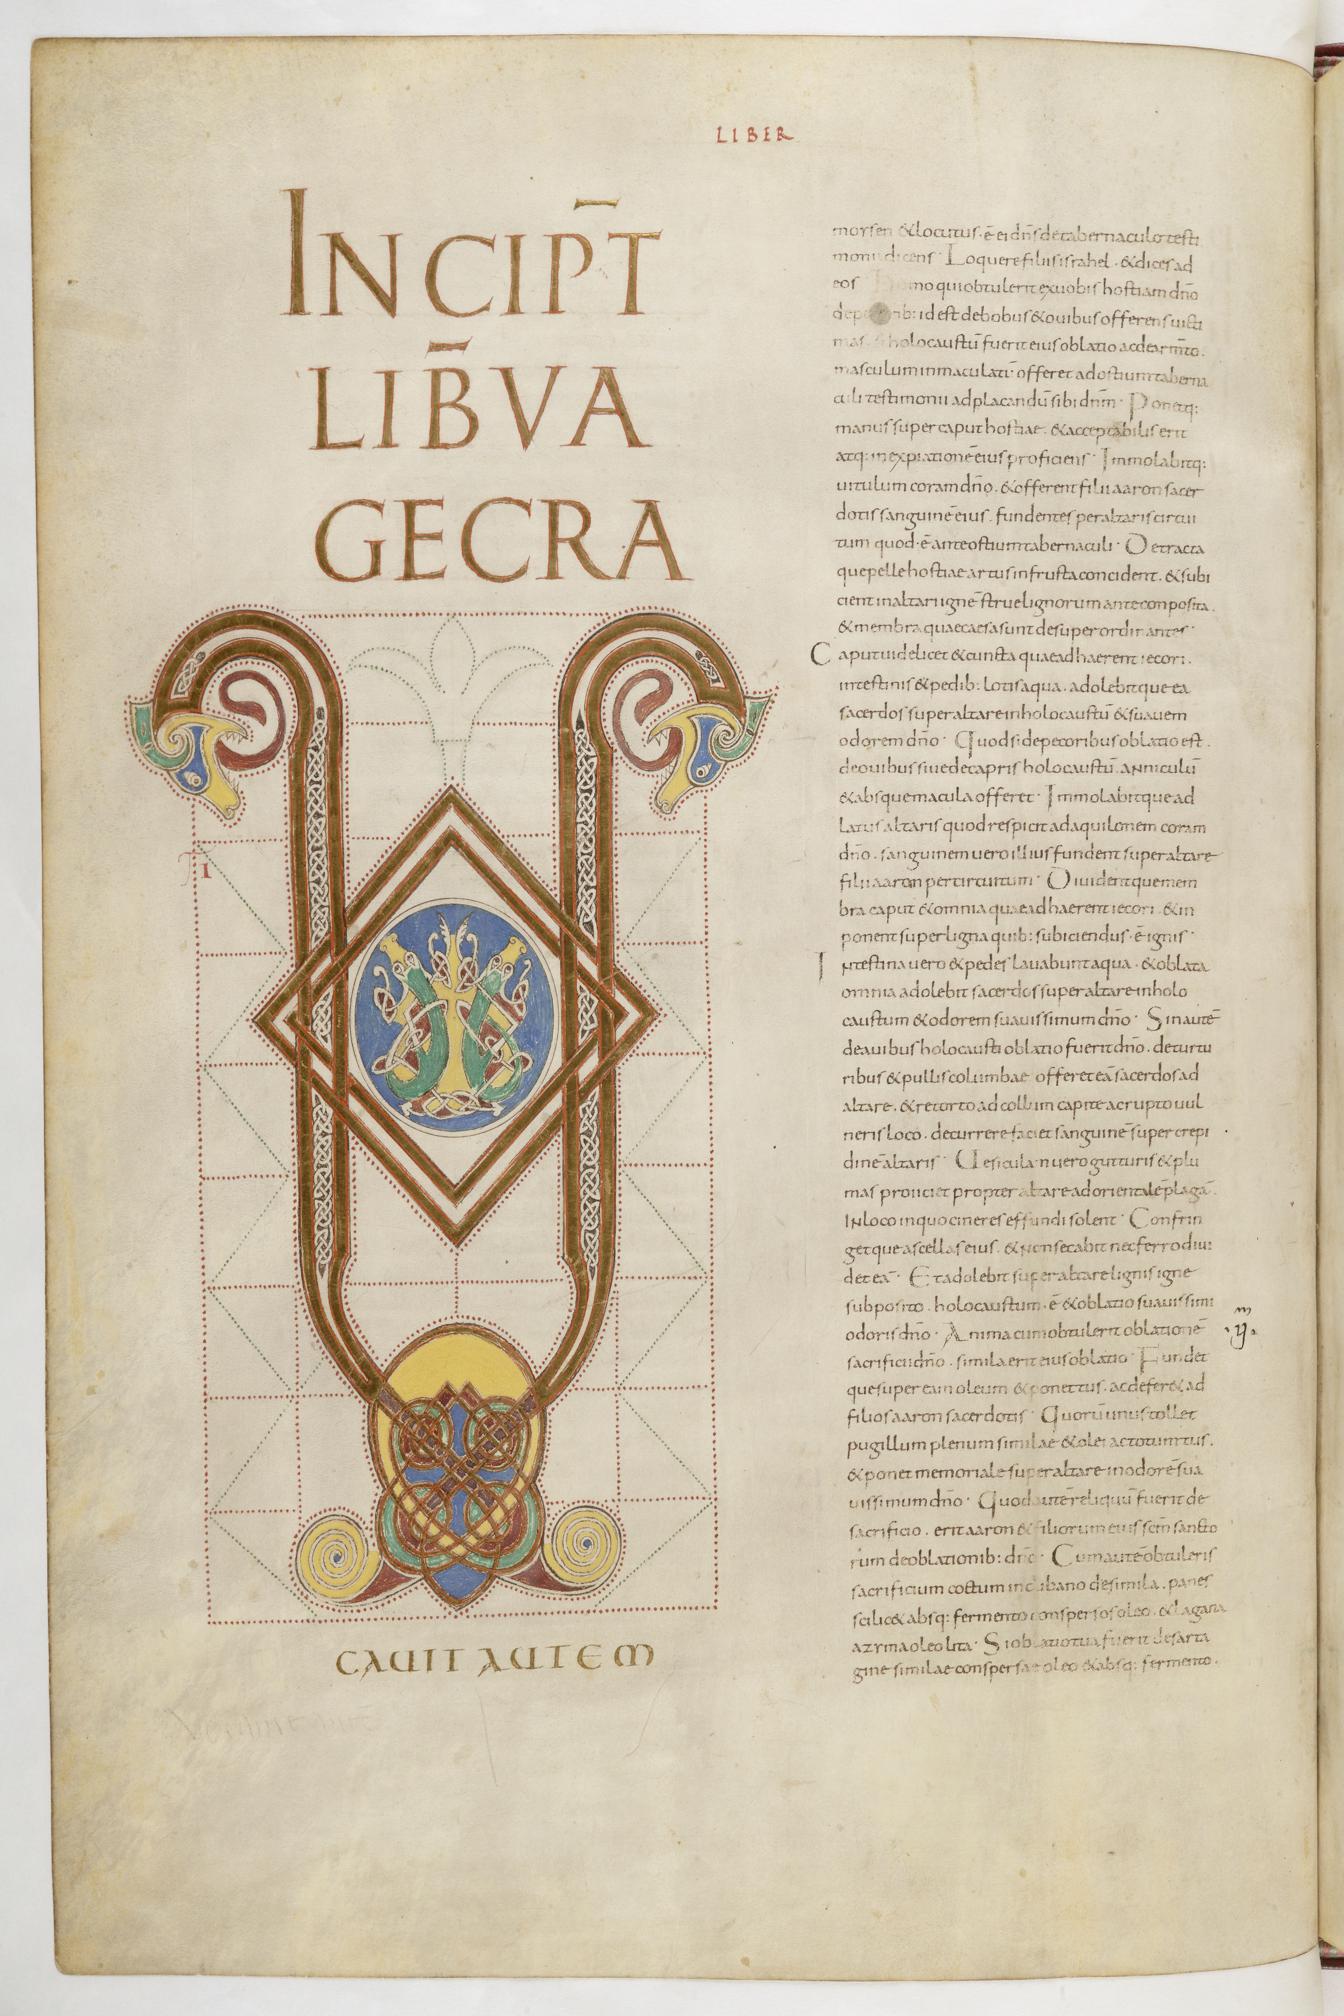 LIBER
INCIPT̄
LIB̄ VA
GECRA
TI
V
CAUIT AUTEM
moysen & locutus · ē ei dn̄s de tabernaculo testi
monii dicens · Loquere filiis israhel · & dices ad
eos · Homo qui obtulerit ex uobis hostiam dn̄o
de pecorib: id est de bobus & ouibus offerens uicti
mas · si holocaustū fuerit eius oblatio ac de arm̄to ·
masculum inmaculatū offeret ad ostium taberna
culi testimonii ad placandū sibi dn̄m · Ponetq:
manus super caput hostiae · & acceptabilis erit
atq: in expiationē eius proficiens · Immolabitq:
uitulum coram dn̄o · & offerent filii aaron sacer
dotis sanguinē eius · fundentes per altaris circui
tum quod · ē ante ostium tabernaculi · Detracta
que pelle hostiae artus in frusta concident · & subi
cient in altari ignē strue lignorum ante conposita ·
& membra quae caesa sunt desuper ordinantes ·
Caput uidelicet & cuncta quae adhaerent iecori ·
intestinis & pedib: lotis aqua · adolebitque ea
sacerdos super altare in holocaustū & suauem
odorem dn̄o · Quod si de pecoribus oblatio est ·
de ouibus siue de capris holocaustū · anniculū
& absque macula offeret · Immolabitque ad
latus altaris quod respicit ad aquilonem coram
dn̄o · sanguinem uero illius fundent super altare
filii aaron per circuitum · Diuidentque mem
bra caput & omnia quae adhaerent iecori · & in
ponent super ligna quib: subiciendus · ē ignis ·
Intestina uero & pedes lauabunt aqua · & oblata
omnia adolebit sacerdos super altare in holo
caustum & odorem suauissimum dn̄o · Sin autē
de auibus holocausti oblatio fuerit dn̄o · de turtu
ribus & pullis columbae offeret eā sacerdos ad
altare · & retorto ad collum capite ac rupto uul
neris loco · decurrere faciet sanguinē super crepi
dinē altaris · Uesiculam uero gutturis & plu
mas proiiciet propter altare ad orientalē plagā ·
IN loco in quo cineres effundi solent · Confrin
getque ascellas eius · & non secabit nec ferro diui
det eā · Et adolebit super altare lignis igne
subposito · holocaustum · ē & oblatio suauissimi
odoris dn̄o · Anima cum obtulerit oblationē
sacrificii dn̄o · simila erit eius oblatio · Fundet
que super eam oleum & ponet tus · ac deferet ad
filios aaron sacerdotis · Quorū unus tollet
pugillum plenum similae & olei ac totum tus ·
& ponet memoriale super altare in odorē sua
uissimum dn̄o · Quod autē reliquū fuerit de
sacrificio · erit aaron & filiorum eius scm̄ sancto
rum de oblationib: dn̄i · Cum autē obtuleris
sacrificium coctum in clibano de simila · panes
scilic& absq: fermento conspersos oleo · & lagana
azyma oleo lita · Si oblatio tua fuerit de sarta
gine similae conspersae oleo & absq: fermento ·